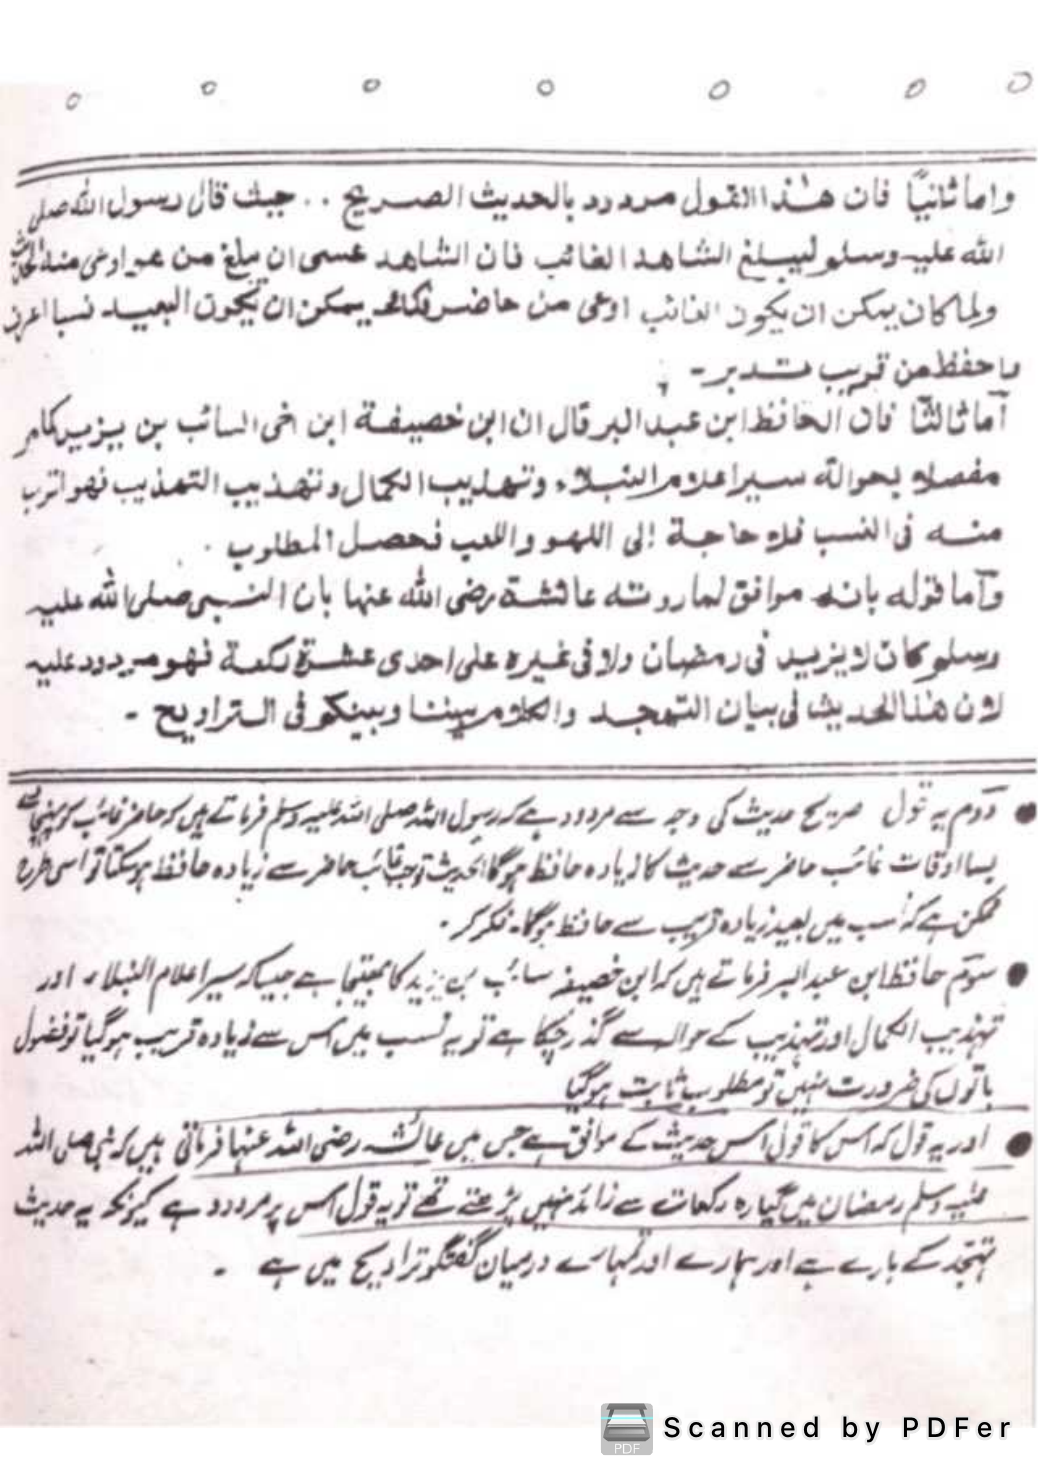 واما ثانيًا فان هٰذا القول مردود بالحديث الصريح .. حيث قال رسول الله صلى
الله عليه وسلم ليبلغ الشاهد الغائب فان الشاهد عسى ان يبلغ من هو اوعى منه
ولما كان يمكن ان يكون الغائب اوعى من حاضر فكذالك يمكن ان يكون البعيد نسبا اعرف
واحفظ من قريب فتدبر -
آما ثالثًا فان الحافظ ابن عبد البر قال ان ابن خصيفة ابن اخى السائب بن يزيد كما مر
مفصلا بحوالة سير اعلام النبلاء وتهذيب الكمال وتهذيب التهذيب فهو اقرب
منه فى النسب فلا حاجة الى اللهو واللعب فحصل المطلوب .
وآما قوله بانه موافق لما روته عائشة رضى الله عنها بان النبى صلى الله عليه
وسلم كان لا يزيد فى رمضان ولا فى غيره على احدى عشرة ركعة فهو مردود عليه
لان هٰذا الحديث فى بيان التهجد والكلام بيننا وبينكم فى التراويح -
● دوّم یہ قول صریح حدیث کی وجہ سے مردود ہے کہ رسول اللہ صلی اللہ علیہ وسلم فرماتے ہیں کہ حاضر غائب کو پہنچائے
بسا اوقات غائب حاضر سے حدیث کا زیادہ حافظ ہوگا الحدیث تو جب غائب حاضر سے زیادہ حافظ ہوسکتا تو اسی طرح
ممکن ہے کہ نسب میں بعید زیادہ قریب سے حافظ ہوگا۔ فکر کر -
● سوّم حافظ ابن عبد البر فرماتے ہیں کہ ابن خصیفہ سائب بن یزید کا بھتیجا ہے جیسا کہ سیر اعلام النبلاء اور
تہذیب الکمال اور تہذیب کے حوالہ سے گذر چکا ہے تو یہ نسب میں اس سے زیادہ قریب ہوگیا تو فضول
باتوں کی ضرورت نہیں تو مطلوب ثابت ہوگیا
● اور یہ قول کہ اس کا قول اس حدیث کے موافق ہے جس میں عائشہ رضی اللہ عنہا فرماتی ہیں کہ نبی صلی اللہ
علیہ وسلم رمضان میں گیارہ رکعات سے زائد نہیں پڑھتے تھے تو یہ قول اس پر مردود ہے کیونکہ یہ حدیث
تہجّد کے بارے ہے اور ہمارے اور تمہارے درمیان گفتگو تراویح میں ہے -
Scanned by PDFer
PDF